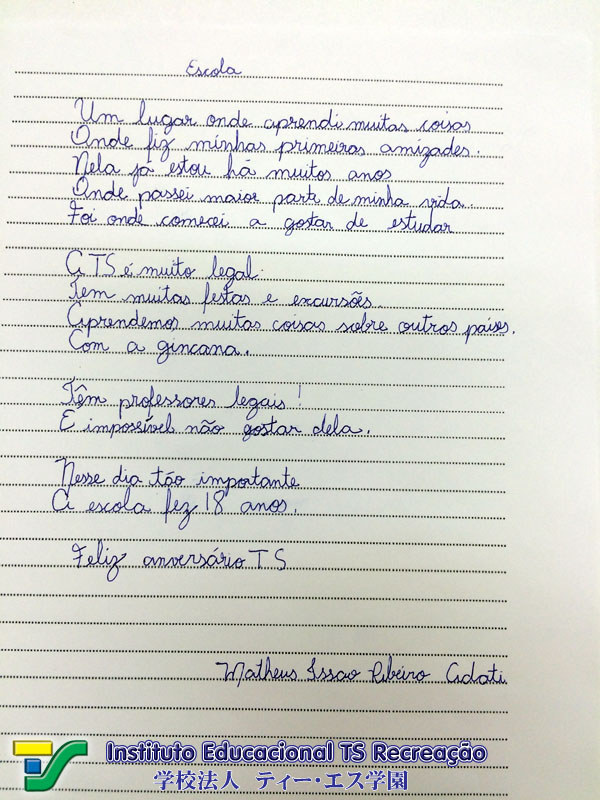 Escola
Um lugar onde aprendi muitas coisas
Onde fiz minhas primeiras amizades.
Nela já estou há muitos anos
Onde passei maior parte de minha vida.
Foi onde comecei a gostar de estudar
A TS é muito legal.
Tem muitas festas e excursões.
Aprendemos muitas coisas sobre outros países.
Com a gincana.
Têm professores legais!
É impossível não gostar dela.
Nesse dia tão importante
A escola fez 18 anos.
Feliz anversário TS
Matheus Issao Ribeiro Adati
TS Instituto Educacional TS Recreação
学校法人 ティー・エス学園